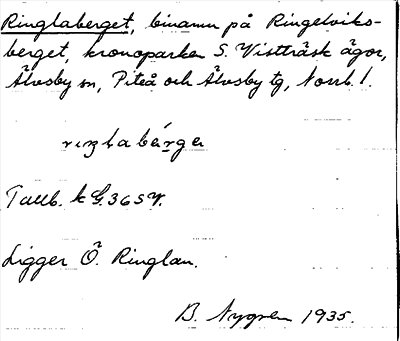 Ringlaberget, binamn på Ringelviks-
berget, kronoparken S. Vistträsk ägor,
Älvsby sn, Piteå och Älvsby tg, Norrb. l.
rıŋlabærge
Tallb. k G. 365 V.
Ligger Ö. Ringlan.
B. Nygren 1935.